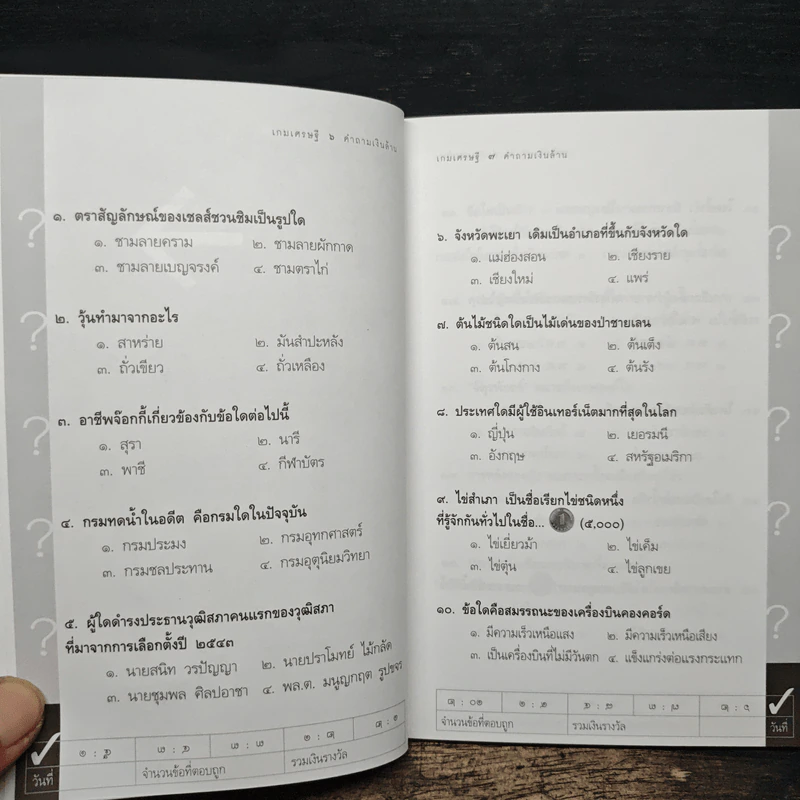 เกมเศรษฐี ๖ คำถามเงินล้าน
๑. ตราสัญลักษณ์ของเชลส์ชวนชิมเป็นรูปใด
๑. ชามลายคราม ๒. ชามลายผักกาด
๓. ชามลายเบญจรงค์ ๔. ชามตราไก่
๒. วุ้นทำมาจากอะไร
๑. สาหร่าย ๒. มันสำปะหลัง
๓. ถั่วเขียว ๔. ถั่วเหลือง
๓. อาชีพจ๊อกกี้เกี่ยวข้องกับข้อใดต่อไปนี้
๑. สุรา ๒. นารี
๓. พาชี ๔. กีฬาบัตร
๔. กรมทดน้ำในอดีต คือกรมใดในปัจจุบัน
๑. กรมประมง ๒. กรมอุทกศาสตร์
๓. กรมชลประทาน ๔. กรมอุตุนิยมวิทยา
๕. ผู้ใดดำรงประธานวุฒิสภาคนแรกของวุฒิสภา
ที่มาจากการเลือกตั้งปี ๒๕๔๓
๑. นายสนิท วรปัญญา ๒. นายปราโมทย์ ไม้กลัด
๓. นายชุมพล ศิลปอาชา ๔. พล.ต. มนูญกฤต รูปขจร
วันที่
จำนวนข้อที่ตอบถูก รวมเงินรางวัล
เกมเศรษฐี ๗ คำถามเงินล้าน
๖. จังหวัดพะเยา เดิมเป็นอำเภอที่ขึ้นกับจังหวัดใด
๑. แม่ฮ่องสอน ๒. เชียงราย
๓. เชียงใหม่ ๔. แพร่
๗. ต้นไม้ชนิดใดเป็นไม้เด่นของป่าชายเลน
๑. ต้นสน ๒. ต้นเต็ง
๓. ต้นโกงกาง ๔. ต้นรัง
๘. ประเทศใดมีผู้ใช้อินเทอร์เน็ตมากที่สุดในโลก
๑. ญี่ปุ่น ๒. เยอรมนี
๓. อังกฤษ ๔. สหรัฐอเมริกา
๙. ไข่สำเภา เป็นชื่อเรียกไข่ชนิดหนึ่ง
ที่รู้จักกันทั่วไปในชื่อ... (๕,๐๐๐)
๑. ไข่เยี่ยวม้า ๒. ไข่เค็ม
๓. ไข่ตุ๋น ๔. ไข่ลูกเขย
๑๐. ข้อใดคือสมรรถนะของเครื่องบินคองคอร์ด
๑. มีความเร็วเหนือแสง ๒. มีความเร็วเหนือเสียง
๓. เป็นเครื่องบินที่ไม่มีวันตก ๔. แข็งแกร่งต่อแรงกระแทก
จำนวนข้อที่ตอบถูก รวมเงินรางวัล
วันที่